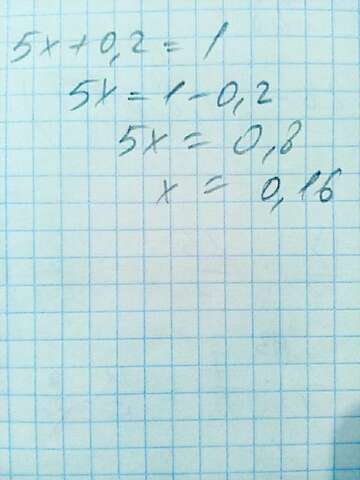 5x+0,2=1
5x=1-0,2
5x=0,8
x=0,16